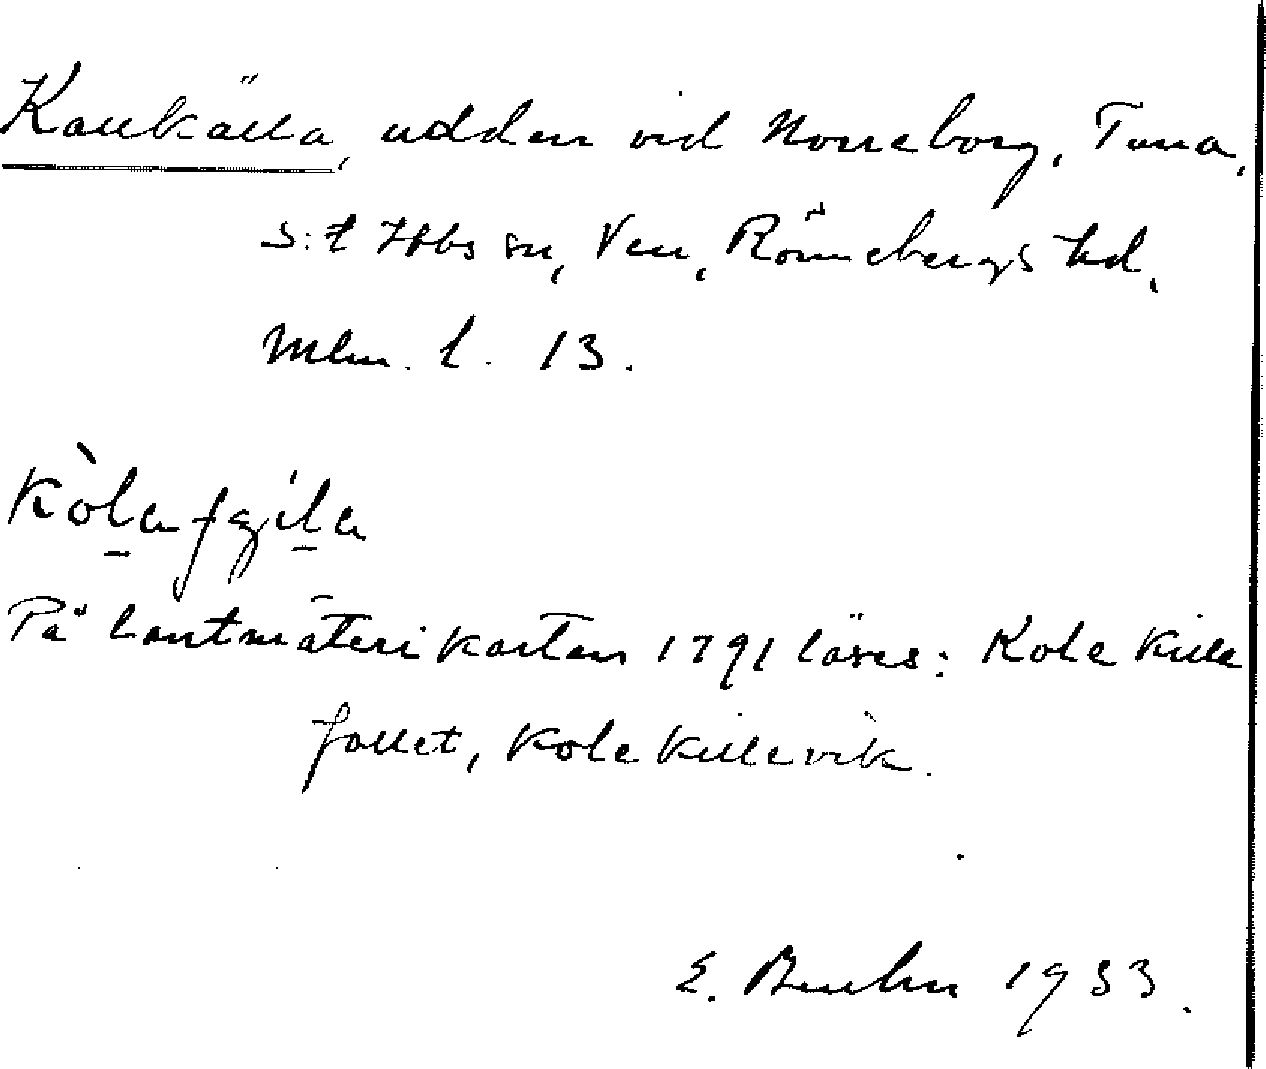 Kallkälla, udden vid Norreborg, Tuna,
S:t Ibbs sn, Ven, Rönnebergs hd,
Mlm. l. 13.
På lantmäterikartan 1791 läses: Kolekille
fallet, Kolekillevik.
E. Bruhn 1933.